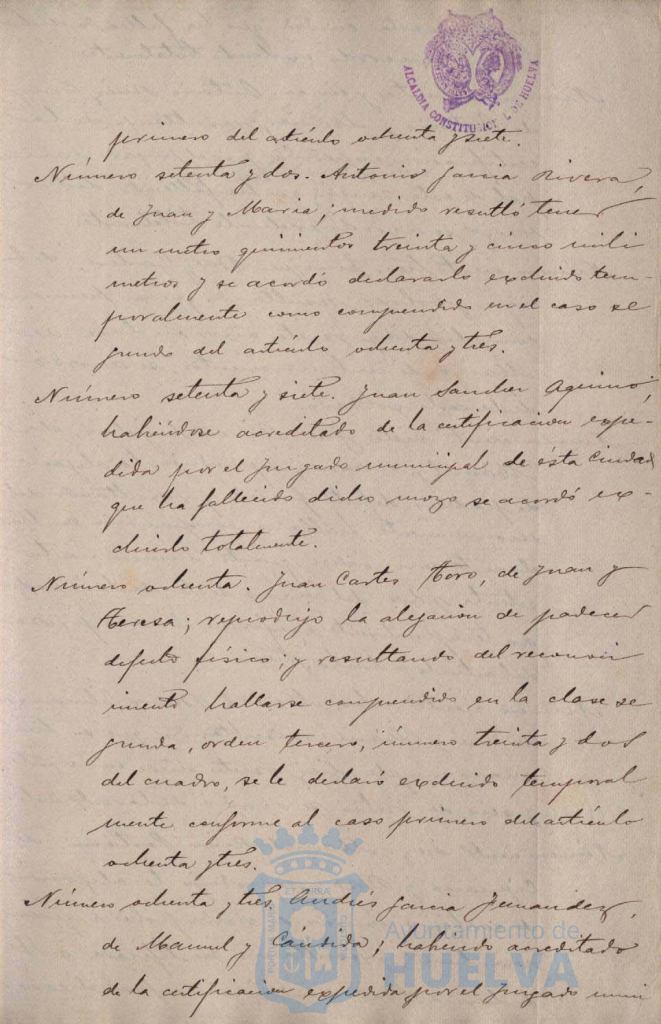 ALCALDIA CONSTITUCIONAL DE HUELVA
primero del artículo ochenta y siete.
Número setenta y dos. Antonio Garcia Rivera,
de Juan y Maria; medido resultó tener
un metro quinientos treinta y cinco mili
metros y se acordó declararlo excluido tem-
poralmente como comprendido en el caso se
gundo del artículo ochenta y tres.
Número setenta y siete. Juan Sanchez Aquino,
habiéndose acreditado de la certificacion expe-
dida por el Juzgado municipal de ésta Ciudad
que ha fallecido dicho mozo se acordó ex-
cluirlo totalmente.
Número ochenta. Juan Cortes Toro, de Juan y
Teresa; reprodujo la alegacion de padecer
defecto físico; y resultando del reconoci
miento hallarse comprendido en la clase se
gunda, orden tercero, número treinta y dos
del cuadro, se le declaró excluido temporal
mente conforme al caso primero del artículo
ochenta y tres.
Número ochenta y tres. Andrés Garcia Fernandez,
de Manuel y Cándida; habiendo acreditado
de la certificacion expedida por el Juzgado muni
Ayuntamiento de
HUELVA